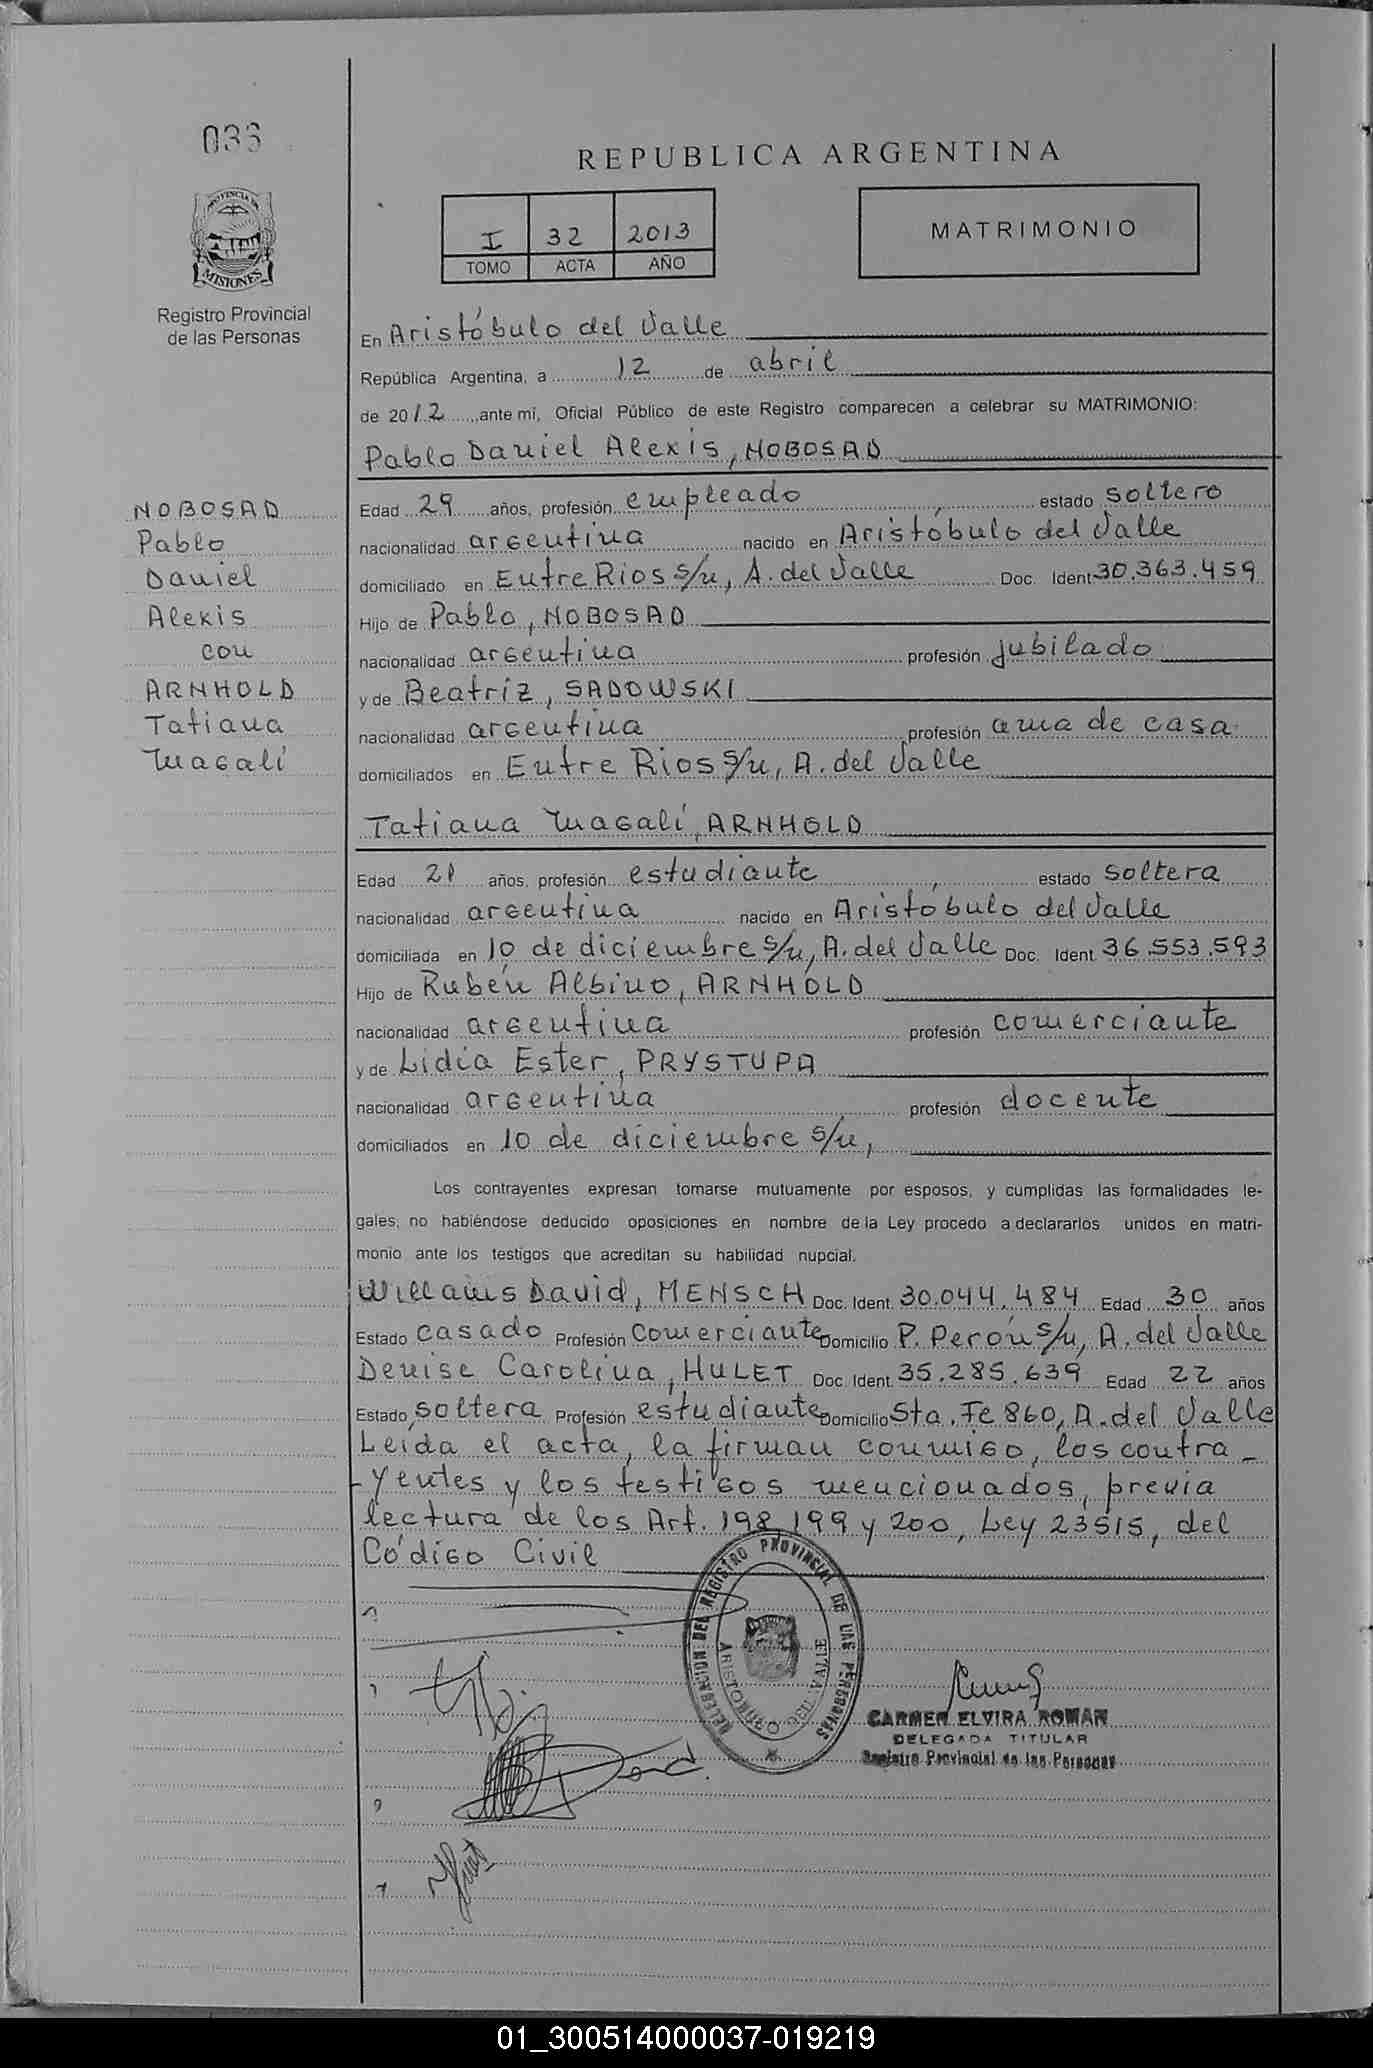 033
REPUBLICA ARGENTINA
I 32 2013
TOMO ACTA AÑO
MATRIMONIO
PROVINCIA DE
MISIONES
Registro Provincial
de las Personas
En Aristóbulo del Valle
República Argentina, a 12 de abril
de 2012, ante mí, Oficial Público de este Registro comparecen a celebrar su MATRIMONIO:
Pablo Daniel Alexis, NOBOSAD
NOBOSAD
Pablo
Daniel
Alexis
con
ARNHOLD
Tatiana
Magalí
Edad 29 años, profesión empleado estado soltero
nacionalidad argentina nacido en Aristóbulo del Valle
domiciliado en Entre Rios s/n, A. del Valle Doc. Ident 30.363.459
Hijo de Pablo, NOBOSAD
nacionalidad argentina profesión jubilado
y de Beatriz, SADOWSKI
nacionalidad argentina profesión ama de casa
domiciliados en Entre Rios s/n, A. del Valle
Tatiana Magalí, ARNHOLD
Edad 21 años, profesión estudiante estado soltera
nacionalidad argentina nacido en Aristóbulo del Valle
domiciliada en 10 de diciembre s/n, A. del Valle Doc. Ident. 36.553.593
Hijo de Rubén Albino, ARNHOLD
nacionalidad argentina profesión comerciante
y de Lidia Ester, PRYSTUPA
nacionalidad argentina profesión docente
domiciliados en 10 de diciembre s/n,
Los contrayentes expresan tomarse mutuamente por esposos, y cumplidas las formalidades le-
gales, no habiéndose deducido oposiciones en nombre de la Ley procedo a declararlos unidos en matri-
monio ante los testigos que acreditan su habilidad nupcial.
Willams David, MENSCH Doc. Ident. 30.044.484 Edad 30 años
Estado casado Profesión comerciante Domicilio P. Perón s/n, A. del Valle
Denise Carolina, HULET Doc. Ident. 35.285.639 Edad 22 años
Estado soltera Profesión estudiante Domicilio Sta. Fe 860, A. del Valle
Leída el acta, la firman conmigo, los contra-
yentes y los testigos mencionados, previa
lectura de los Art. 198, 199 y 200, Ley 23515, del
Código Civil
DELEGACION DEL REGISTRO PROVINCIAL DE LAS PERSONAS
ARISTOBULO DEL VALLE
CARMEN ELVIRA ROMAN
DELEGADA TITULAR
Registro Provincial de las Personas
01_300514000037-019219